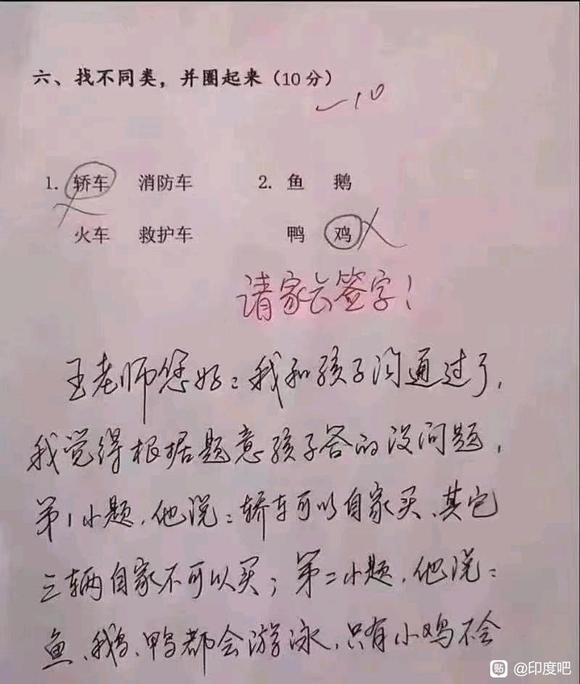 六、找不同类，并圈起来（10分）
-10
1. 轿车 消防车 2. 鱼 鹅
火车 救护车 鸭 鸡
请家长签字！
王老师您好：我和孩子沟通过了，
我觉得根据题意孩子答的没问题，
第1小题，他说：轿车可以自家买、其它
三辆自家不可以买；第二小题，他说：
鱼、鹅、鸭都会游泳，只有小鸡不会
贴 @印度吧